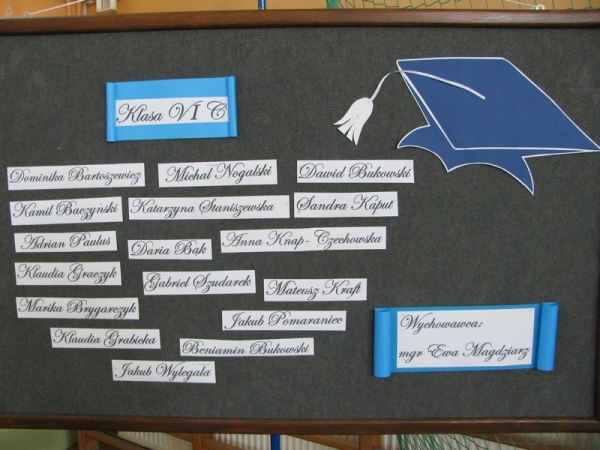 Klasa VI C
Dominika Bartoszewicz
Michał Nogalski
Dawid Bukowski
Kamil Baczyński
Katarzyna Staniszewska
Sandra Kaput
Adrian Paulus
Daria Bąk
Anna Knap-Czechowska
Klaudia Graczyk
Gabriel Szudarek
Mateusz Kraft
Marika Brygarczyk
Jakub Pomaraniec
Klaudia Grabicka
Beniamin Bukowski
Jakub Wylegała
Wychowawca:
mgr Ewa Magdziarz